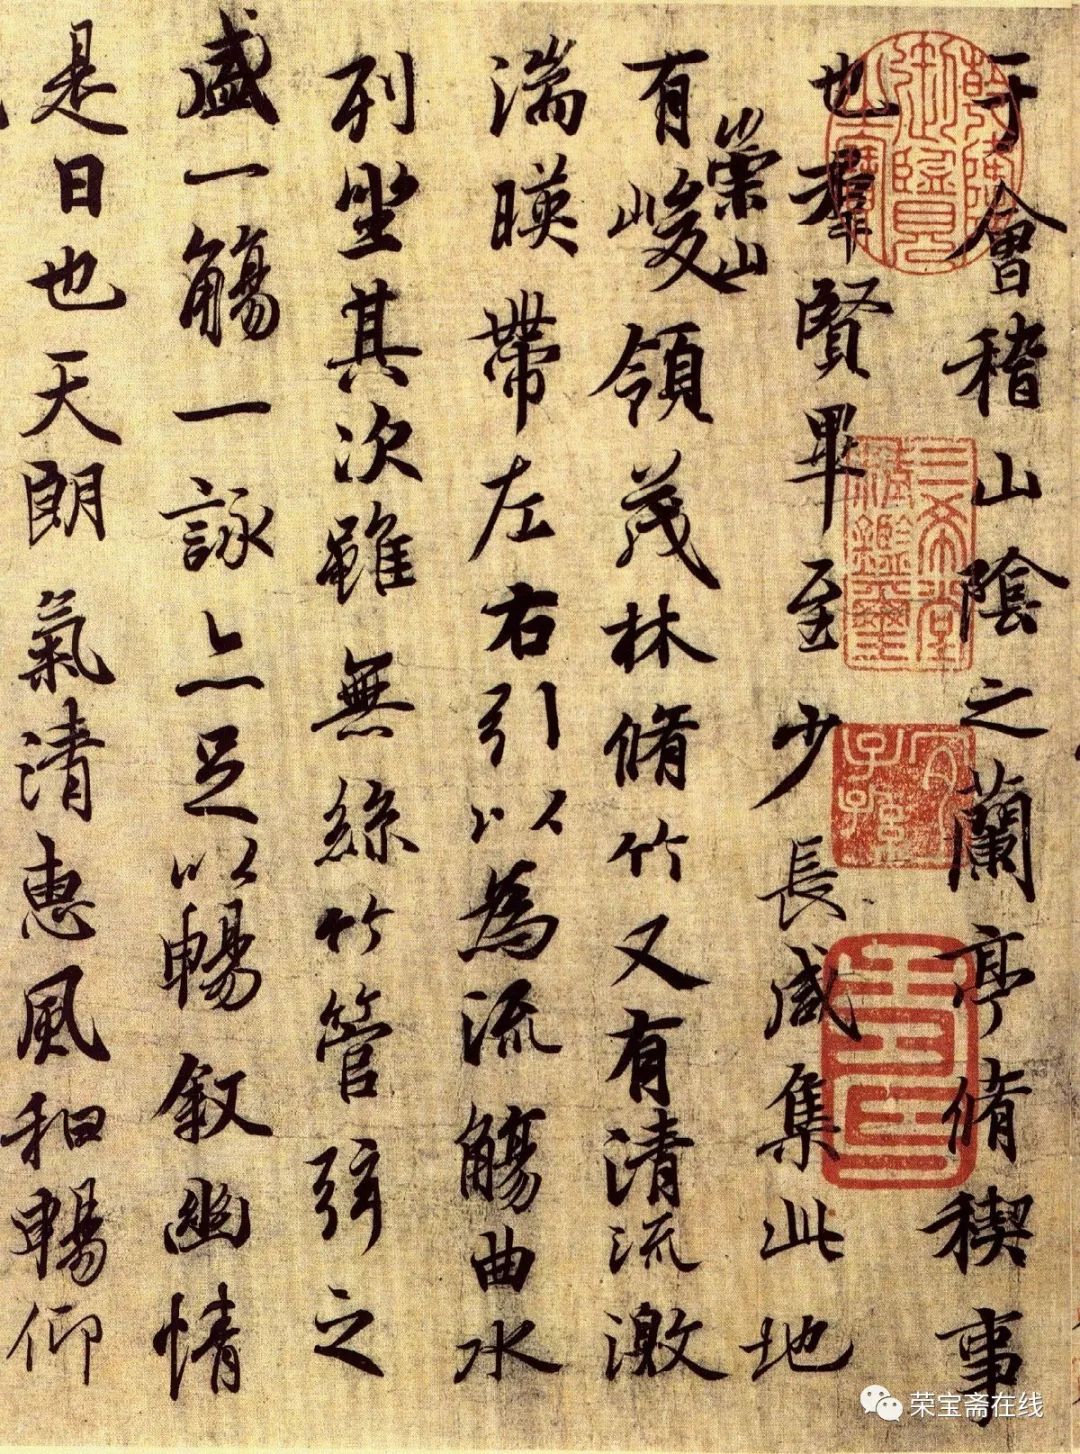 于會稽山陰之蘭亭脩稧事
也羣賢畢至少長咸集此地
有崇山峻領茂林脩竹又有清流激
湍暎帶左右引以為流觴曲水
列坐其次雖無絲竹管弦之
盛一觴一詠亦足以暢叙幽情
是日也天朗氣清惠風和暢仰
三希堂精鑑璽
宜子孫
荣宝斋在线